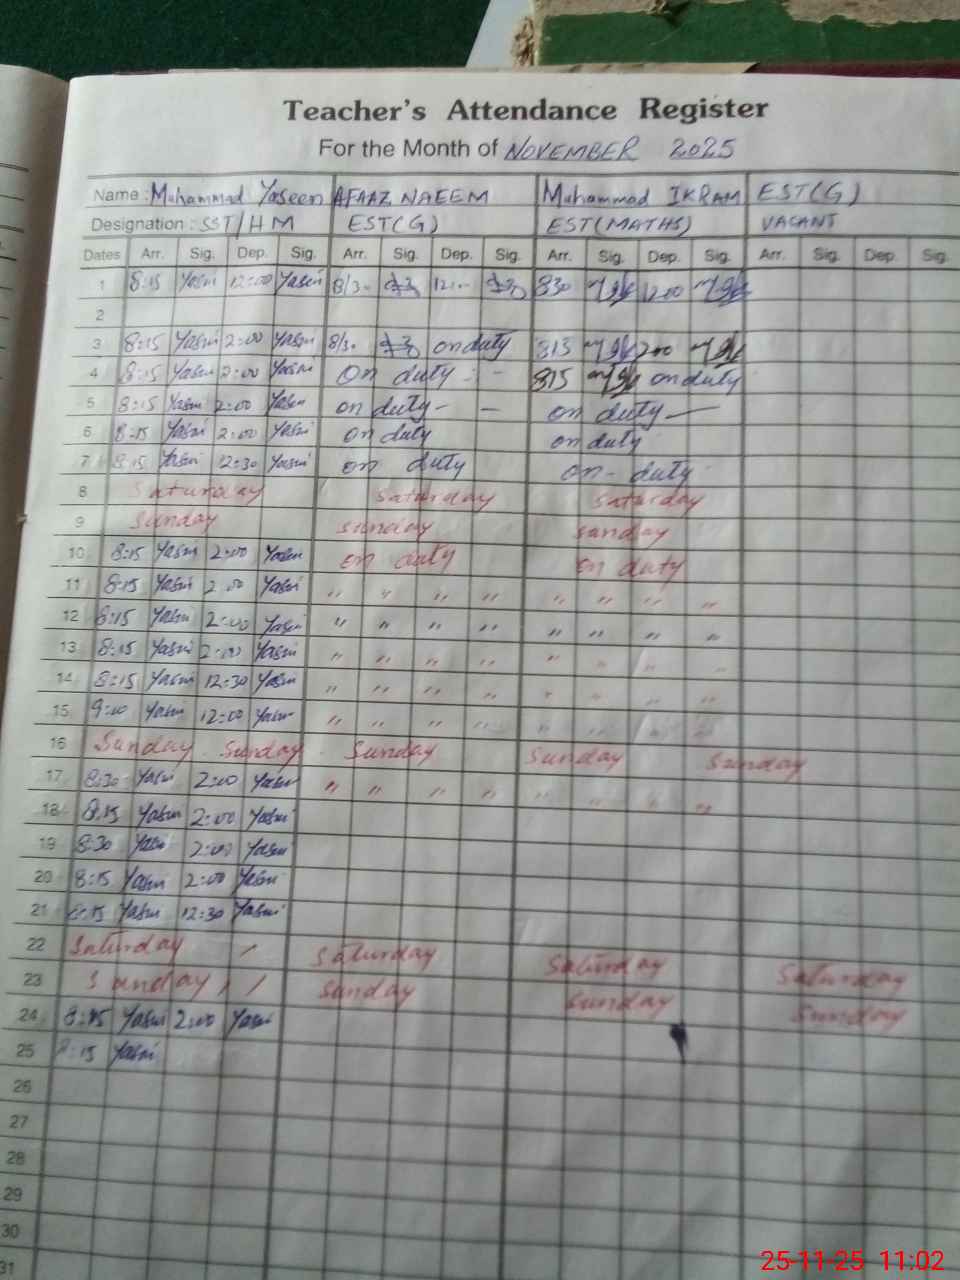 Teacher's Attendance Register
For the Month of NOVEMBER 2025
Name : Muhammad Yaseen AFAAZ NAEEM Muhammad IKRAM EST(G)
Designation : SST/HM EST(G) EST(MATHS) VACANT
Dates Arr. Sig. Dep. Sig. Arr. Sig. Dep. Sig. Arr. Sig. Dep. Sig. Arr. Sig. Dep. Sig.
1 8:15 Yasin 12:00 Yasin 8/30 12:00 830 1200
2
3 8:15 Yasin 2:00 Yasin 8/30 on duty 815 200
4 8:15 Yasin 2:00 Yasin On duty - - 815 on duty
5 8:15 Yasin 2:00 Yasin on duty - — on duty —
6 8:15 Yasin 2:00 Yasin on duty on duty
7 8:15 Yasin 12:30 Yasin on duty on-duty
8 Saturday Saturday Saturday
9 Sunday Sunday Sunday
10 8:15 Yasin 2:00 Yasin on duty on duty
11 8:15 Yasin 2:00 Yasin " " " " " " " "
12 8:15 Yasin 2:00 Yasin " " " " " " " "
13 8:15 Yasin 2:00 Yasin " " " " " " " "
14 8:15 Yasin 12:30 Yasin " " " " " " " "
15 9:00 Yasin 12:00 Yasin " " " "
16 Sunday Sunday Sunday Sunday Sunday
17 8:30 Yasin 2:00 Yasin " " " " " " " "
18 8:15 Yasin 2:00 Yasin
19 8:30 Yasin 2:00 Yasin
20 8:15 Yasin 2:00 Yasin
21 8:15 Yasin 12:30 Yasin
22 Saturday / Saturday Saturday Saturday
23 Sunday / / Sunday Sunday Sunday
24 8:15 Yasin 2:00 Yasin
25 8:15 Yasin
26
27
28
29
30
31
25-11-25 11:02